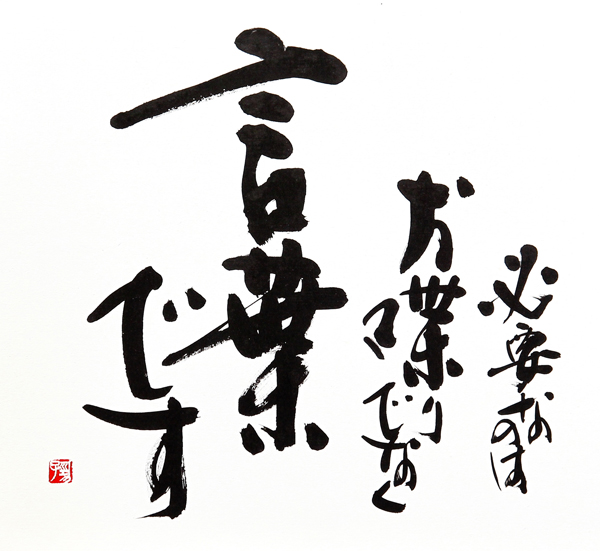 必要なのは
お喋りでなく
言葉
です